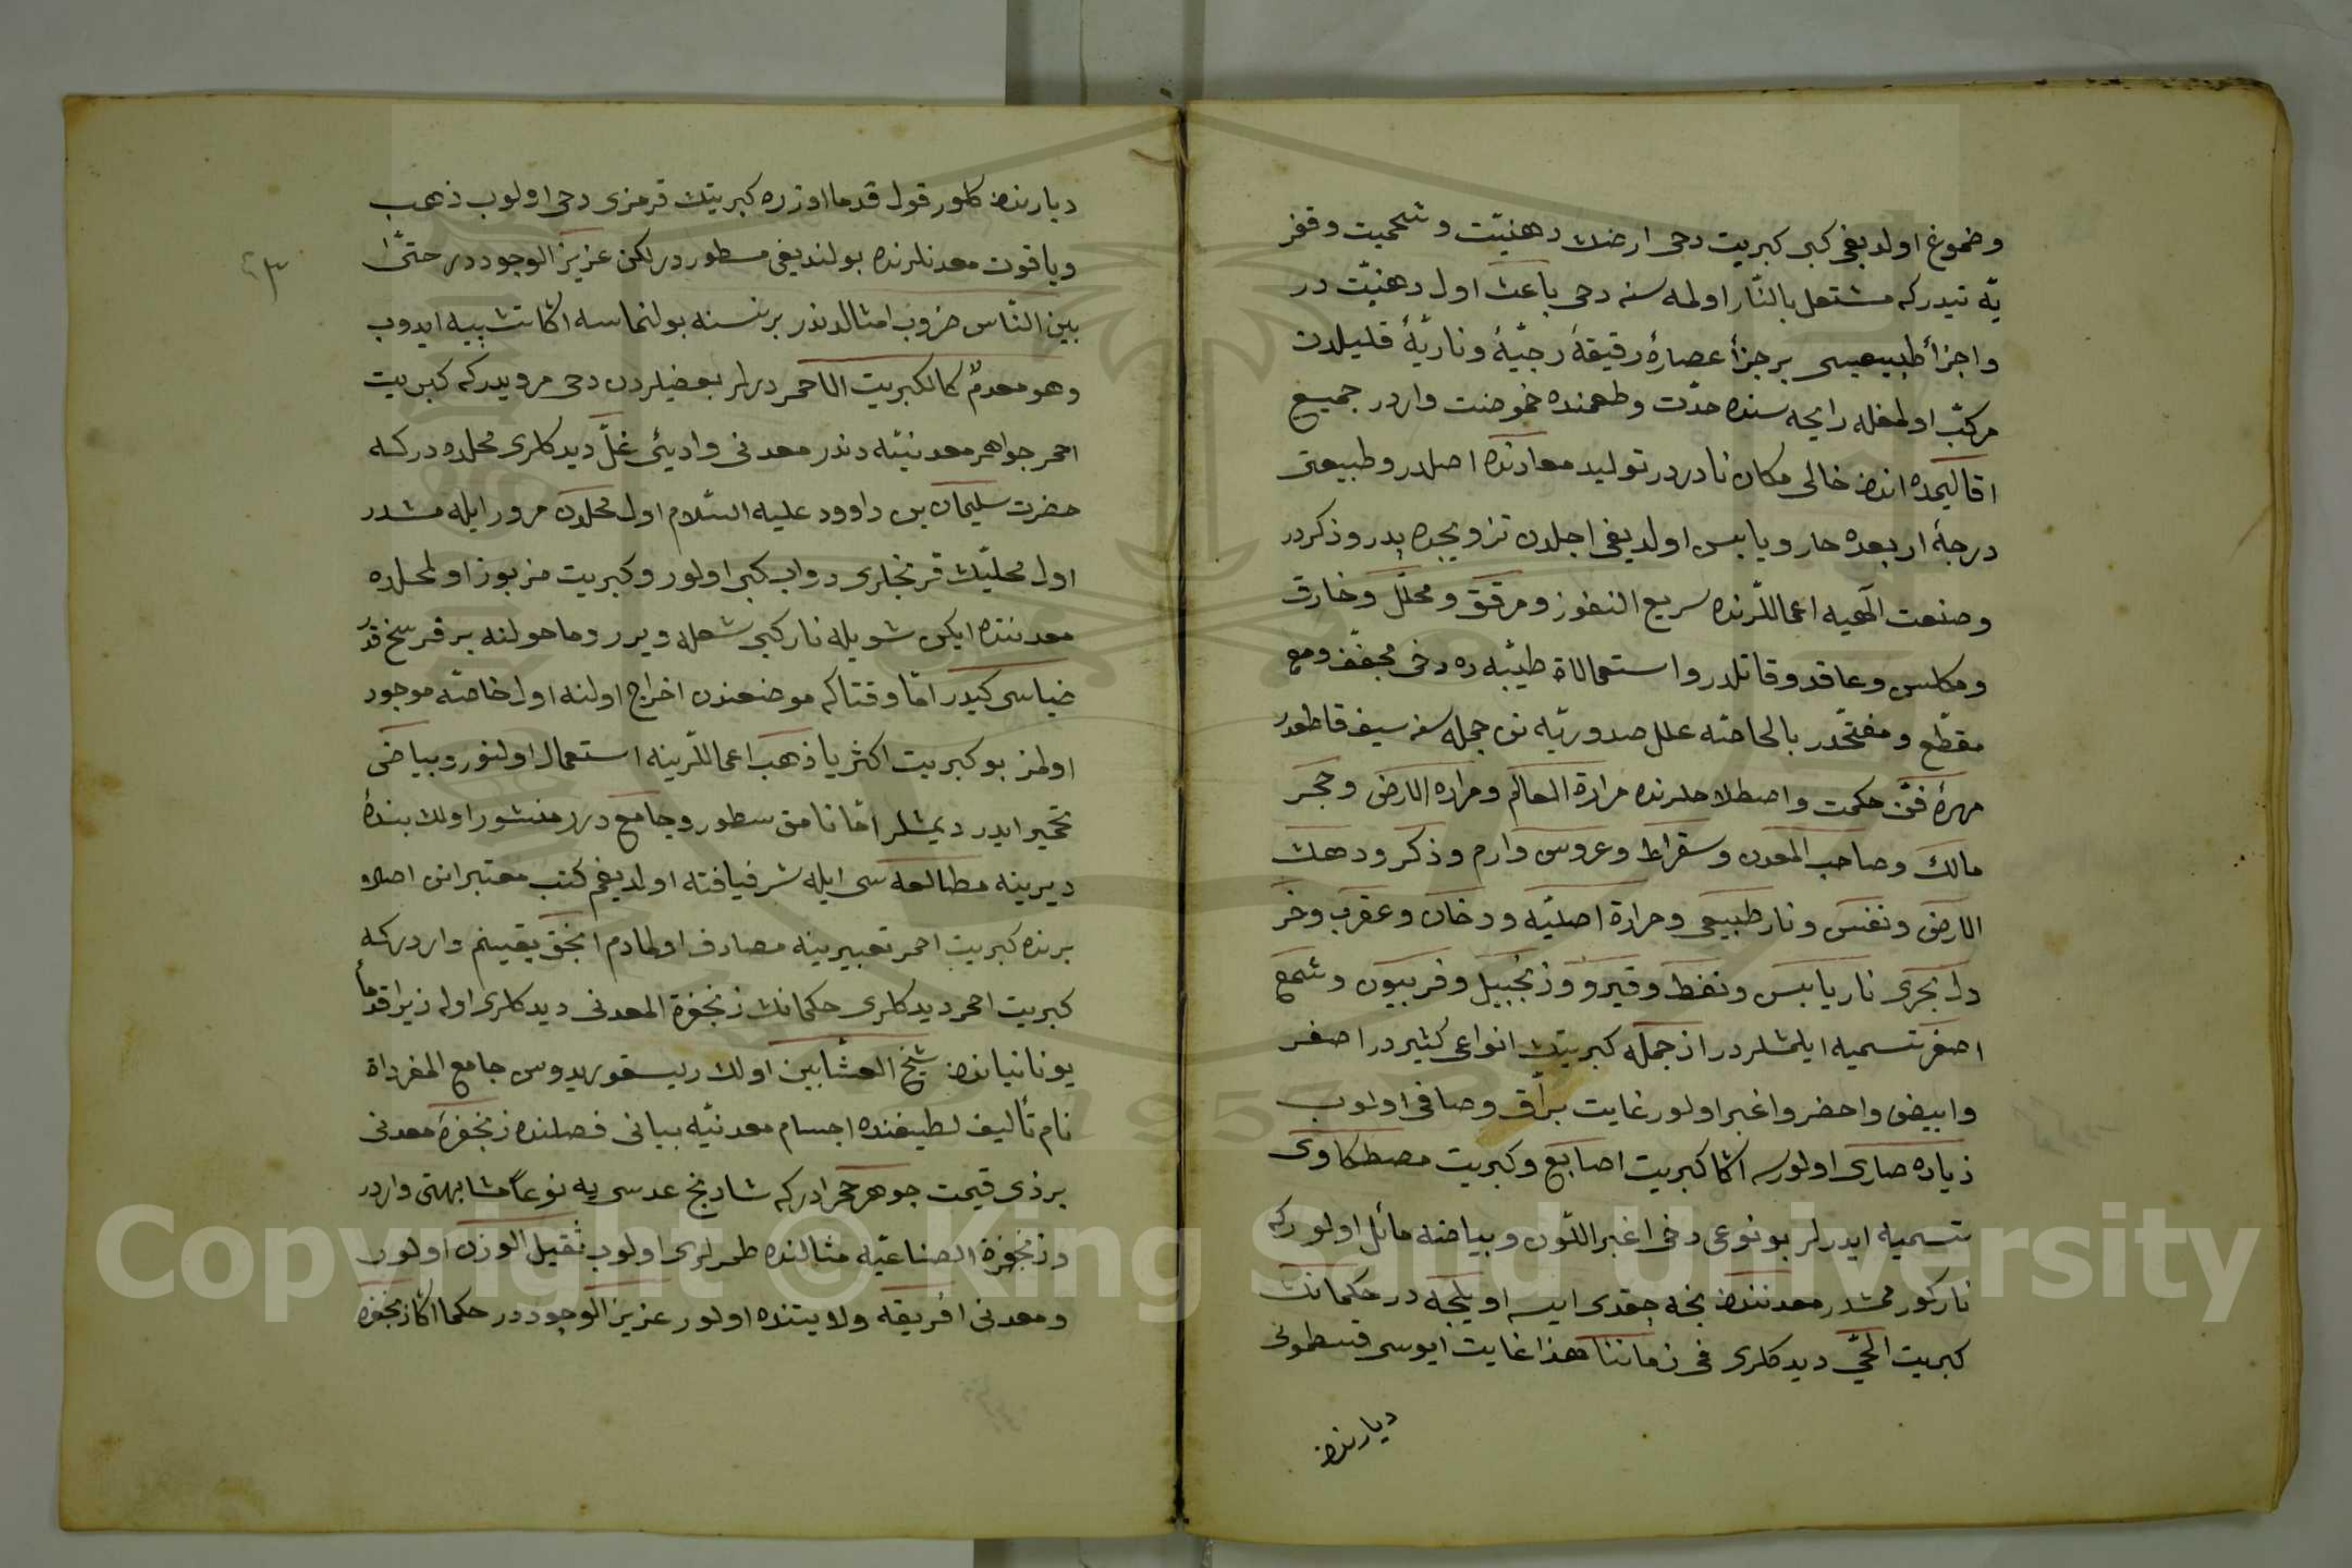 وضموغ اولديغى كبى كبريت دخى ارضك دهنيّت وشحميت وقفر
يّه تيدركه مشتعل بالنّار اولمه سنه دخى باعث اول دهنيّت در
واجزأ طبيعيسى برجزأ عصارهٔ رقيقهٔ رجيّهٔ وناريّهٔ قليلدن
مركب اولمغله رايحه سنده حدّت وطعمنده حموضت واردر جميع
اقاليمده اندن خالى مكان نادردر توليد معادنده اصلدر وطبيعتى
درجهٔ اربعده حار ويابس اولديغى اجلدن تزويجده پدر وذكردر
وصنعت الٓهيه اعماللّرنده سريع النفوز ومرقق ومحلّل وخارق
ومكلس وعاقد وقاتلدر واستعمالاة طيبّه ده دخى مجفّف ومع
مقطّع ومفتّحدر بالحاصّه علل صدوريّه نى جمله سنه سيف قاطعدر
مهرهٔ فنّ حكمت واصطلاحلرنده مرارة العالم ومراره الارض وحجر
مالك وصاحب المعدن وسقراط وعروس وارم وذكر ودهن
الارض ونفس ونار طبيعى وحرارة اصليّه ودخان وعقرب وخر
دل بحرى نار يابس ونفط وقير وزنجبيل وفربيون وشمع
اصفر تسميه ايلمشلردر از جمله كبريتك انواعى كثيردر اصفر
وابيض واحضر واغبر اولور غايت برّاق وصافى اولوب
زياده صارى اولورسه اكا كبريت اصابع وكبريت مصطكاوى
تسميه ايدرلر بو نوعى دخى اغبر اللّون وبياضه مائل اولور كه
ناركورممشدر معدنندن نجه چقدى ايسه اويلجه در حكمانك
كبريت الحىّ ديدكلرى فى زماننا هذا غايت ايوسى قسطمونى
ديارندن
ديارندن كلور قول قدما اوزره كبريتك قرمزى دخى اولوب ذهب
وياقوت معدنلرنده بولنديغى مسطوردر لكن عزيز الوجوددر حتىّ
بين النّاس ضروب امثالدندر بر نسنه بولنماسه اكا تشبيه ايدوب
وهو معدمٌ كالكبريت الاحمر ديرلر بعضيلردن دخى مرويدركه كبريت
احمر جواهر معدنيّه دندر معدنى وادئ غلّ ديدكلرى محلده دركه
حضرت سليمان بن داوود عليه السّلام اول محلدن مرور ايله مشدر
اول محليّك قرنجلرى دواب كبى اولور وكبريت مزبوز اولمحلده
معدننده ايكن شويله نار كبى شعله ويرر وما حولنه بر فرسخ قدر
ضياسى كيدر امّا وقتاكه موضعندن اخراج اولنه اول خاصّه موجود
اولمز بو كبريت اكثريا ذهب اعماللّرينه استعمال اولنور وبياضى
تحمير ايدر ديمشلر امّا نامق سطور وجامع درر منشور اولان بندهٔ
ديرينه مطالعه سى ايله شرفيافته اولديغم كتب معتبرانى اصلاو
برنده كبريت احمر تعبيرينه مصادف اولمادم انجق يقينم واردركه
كبريت احمر ديدكلرى حكمانك زنجفرة المعدنى ديدكلرى اوله زيرا قدمأ
يونانياندن شيخ العشّابين اولان ديسقوريدوس جامع المفرداة
نام تأليف لطيفنده اجسام معدنيّه بيانى فصلنده زنجفرهٔ معدنى
بر ذى قيمت جوهر حجرادركه شادنج عدسى يه نوعاً مشابهتى واردر
وزنجفرة الصناعيّه مثالنده طمرلرى اولوب ثقيل الوزن اولور
ومعدنى افريقه ولايتنده اولور عزيز الوجوددر حكما اكا زنجفره